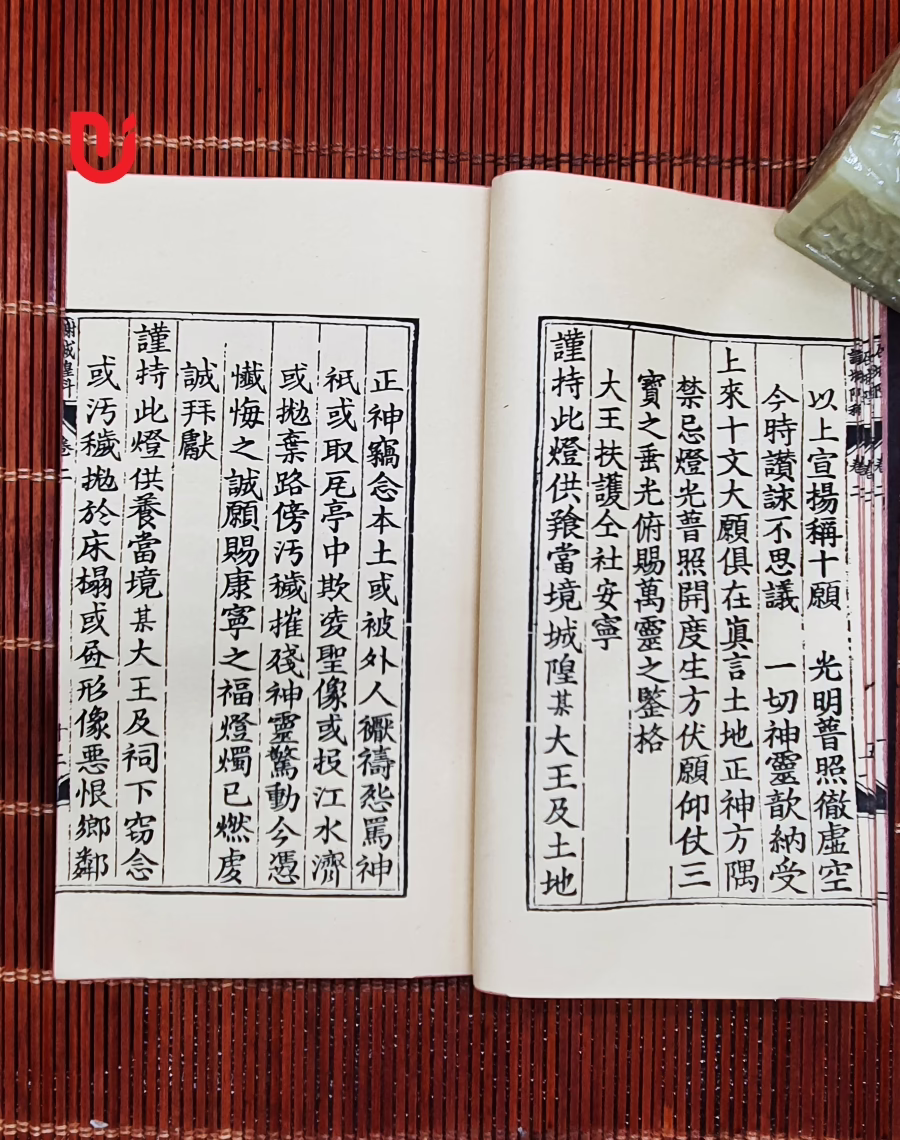 以上宣揚稱十願　光明普照徹虛空
今時讚詠不思議　一切神靈歆納受
上來十文大願俱在眞言土地正神方隅
禁忌燈光普照開度生方伏願仰仗三
寶之垂光俯賜萬靈之鑒格
大王扶護仝社安寧
謹持此燈供養當境城隍某大王及土地
正神竊念本土或被外人禳禱怨罵神
祇或取厇亭中欺夌聖像或投江水濟
或拋棄路傍污穢摧殘神靈驚動今憑
懺悔之誠願賜康寧之福燈燭已燃虔
誠拜獻
謹持此燈供養當境某大王及祠下窃念
或污穢拋於床榻或形像悪恨鄉鄰
謝城隍科
卷二
十二